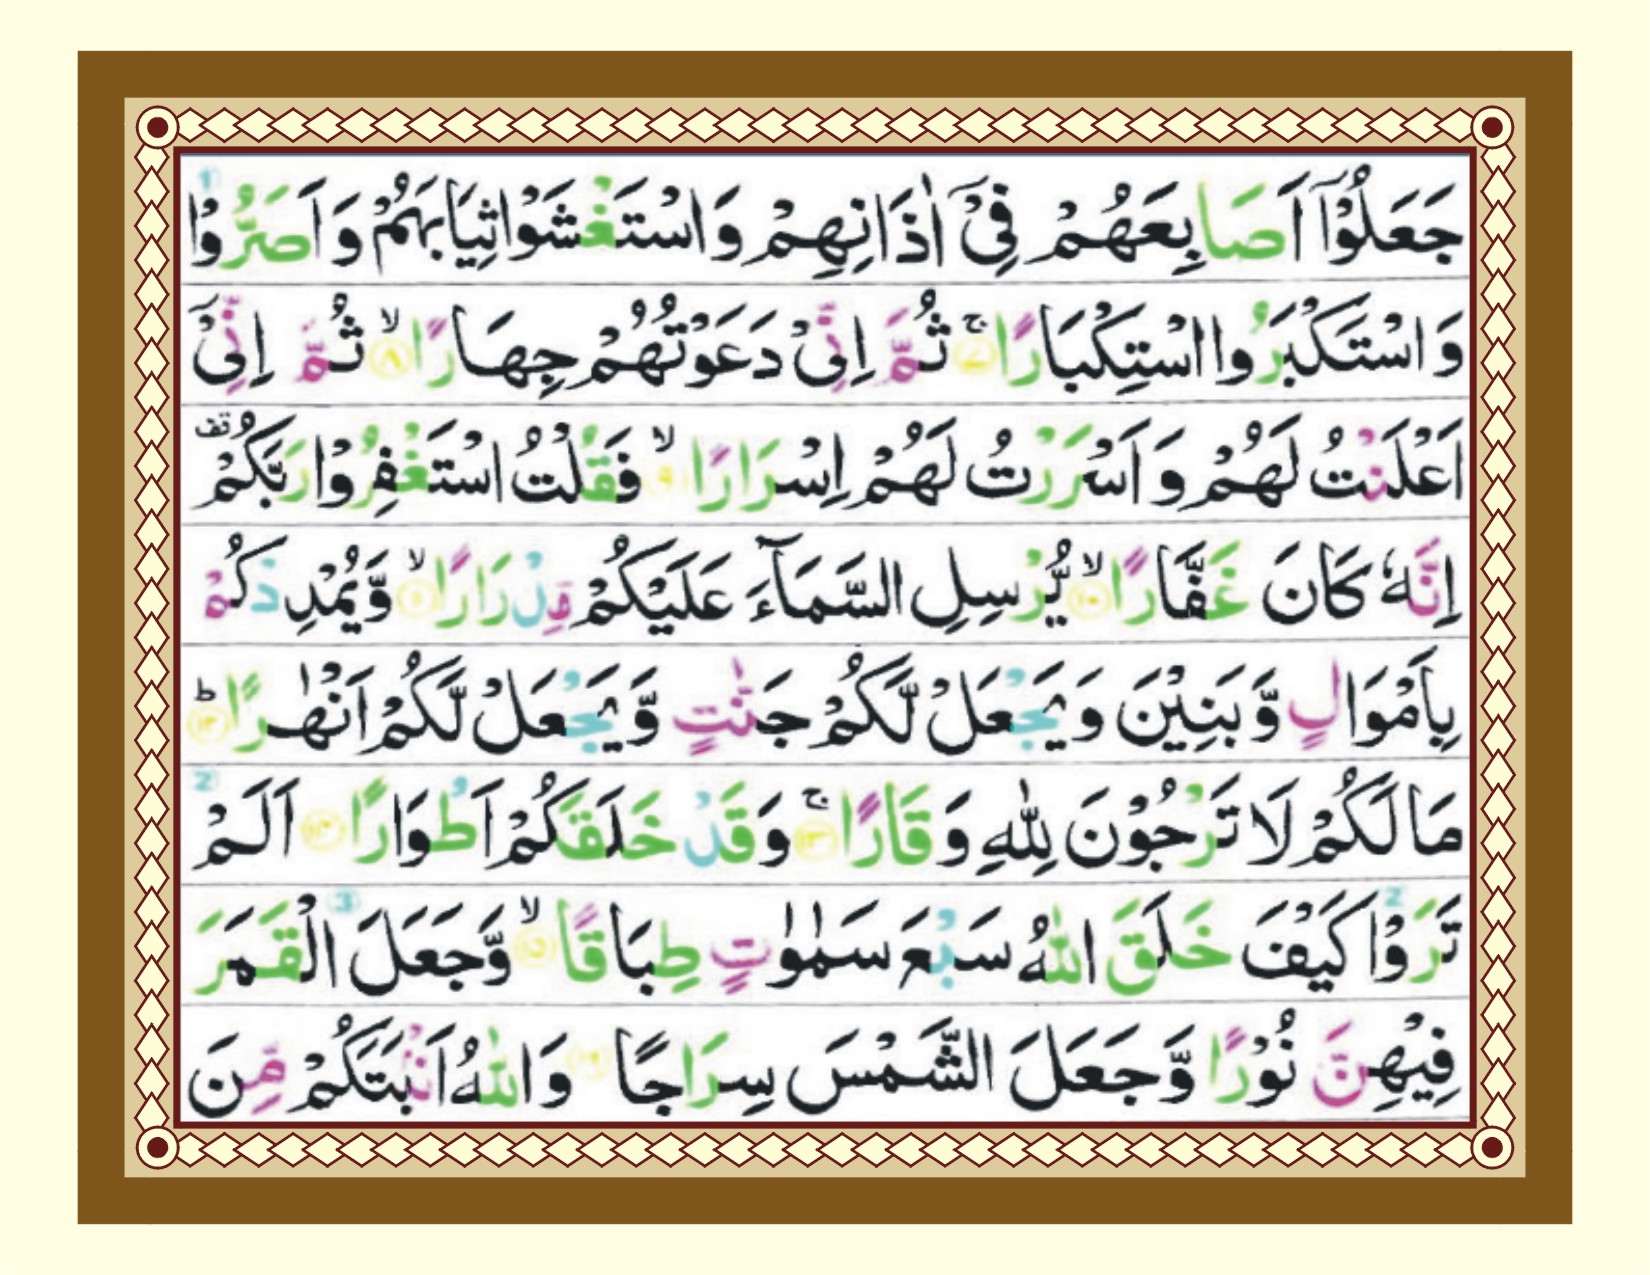 جَعَلُوْۤا اَصَابِعَهُمْ فِیْۤ اٰذَانِهِمْ وَاسْتَغْشَوْا ثِیَابَهُمْ وَ اَصَرُّوْا
وَ اسْتَكْبَرُوا اسْتِكْبَارًا ۚ۷ ثُمَّ اِنِّیْ دَعَوْتُهُمْ جِهَارًا ۙ۸ ثُمَّ اِنِّیْۤ
اَعْلَنْتُ لَهُمْ وَ اَسْرَرْتُ لَهُمْ اِسْرَارًا ۙ۹ فَقُلْتُ اسْتَغْفِرُوْا رَبَّكُمْ قف
اِنَّهٗ كَانَ غَفَّارًا ۙ۱۰ یُّرْسِلِ السَّمَآءَ عَلَیْكُمْ مِّدْرَارًا ۙ۱۱ وَّیُمْدِدْكُمْ
بِاَمْوَالٍ وَّ بَنِیْنَ وَ یَجْعَلْ لَّكُمْ جَنّٰتٍ وَّ یَجْعَلْ لَّكُمْ اَنْهٰرًا ؕ۱۲
مَا لَكُمْ لَا تَرْجُوْنَ لِلّٰهِ وَقَارًا ۚ۱۳ وَقَدْ خَلَقَكُمْ اَطْوَارًا ۱۴ اَلَمْ
تَرَوْا كَیْفَ خَلَقَ اللّٰهُ سَبْعَ سَمٰوٰتٍ طِبَاقًا ۙ۱۵ وَّجَعَلَ الْقَمَرَ
فِیْهِنَّ نُوْرًا وَّ جَعَلَ الشَّمْسَ سِرَاجًا ۱۶ وَ اللّٰهُ اَنْۢبَتَكُمْ مِّنَ